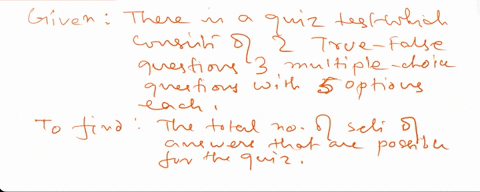 Given: There is a quiz test which
consists of 2 True-False
questions 3 multiple-choice
questions with 5 options
each.
To find: The total no. of sets of
answers that are possible
for the quiz.